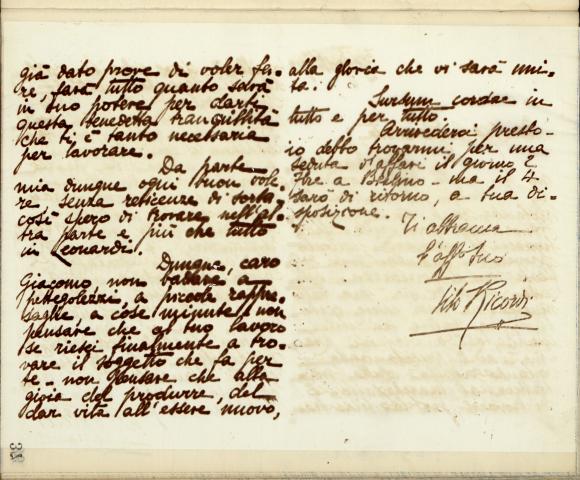 già dato prove di voler fa-
re, farà tutto quanto sarà
in suo potere per darti
questa benedetta tranquillità
che ti è tanto necessaria
per lavorare.
Da parte
mia dunque ogni buon vole-
re, senza reticenze di sorta,
così spero di trovare nell'al-
tra parte e più che tutto
in Leonardi.
Dunque, caro
Giacomo, non badare a
pettegolezzi, a piccole rappre-
saglie, a cose minute, non
pensare che al tuo lavoro
se riesci finalmente a tro-
vare il soggetto che fa per
te - non pensare che alla
gioia del produrre, del
dar vita all'essere nuovo,
alla gloria che vi sarà uni-
ta.
Sursum cordae in
tutto e per tutto.
Arrivederci presto-
io debbo trovarmi per una
seduta d'affari il giorno 2
a - ma il 4
sarò di ritorno, a tua di-
sposizione.
Ti abbraccia
l'aff. tuo
Tito Ricordi
38